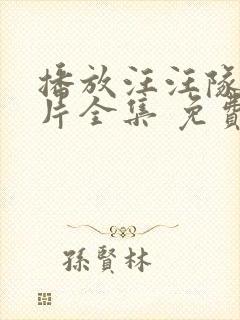 播放汪汪隊
片全集 免費
孫賢林